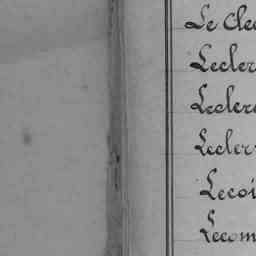 Le Cle
Lecler
Lecler
Lecler
Lecoi
Lecom